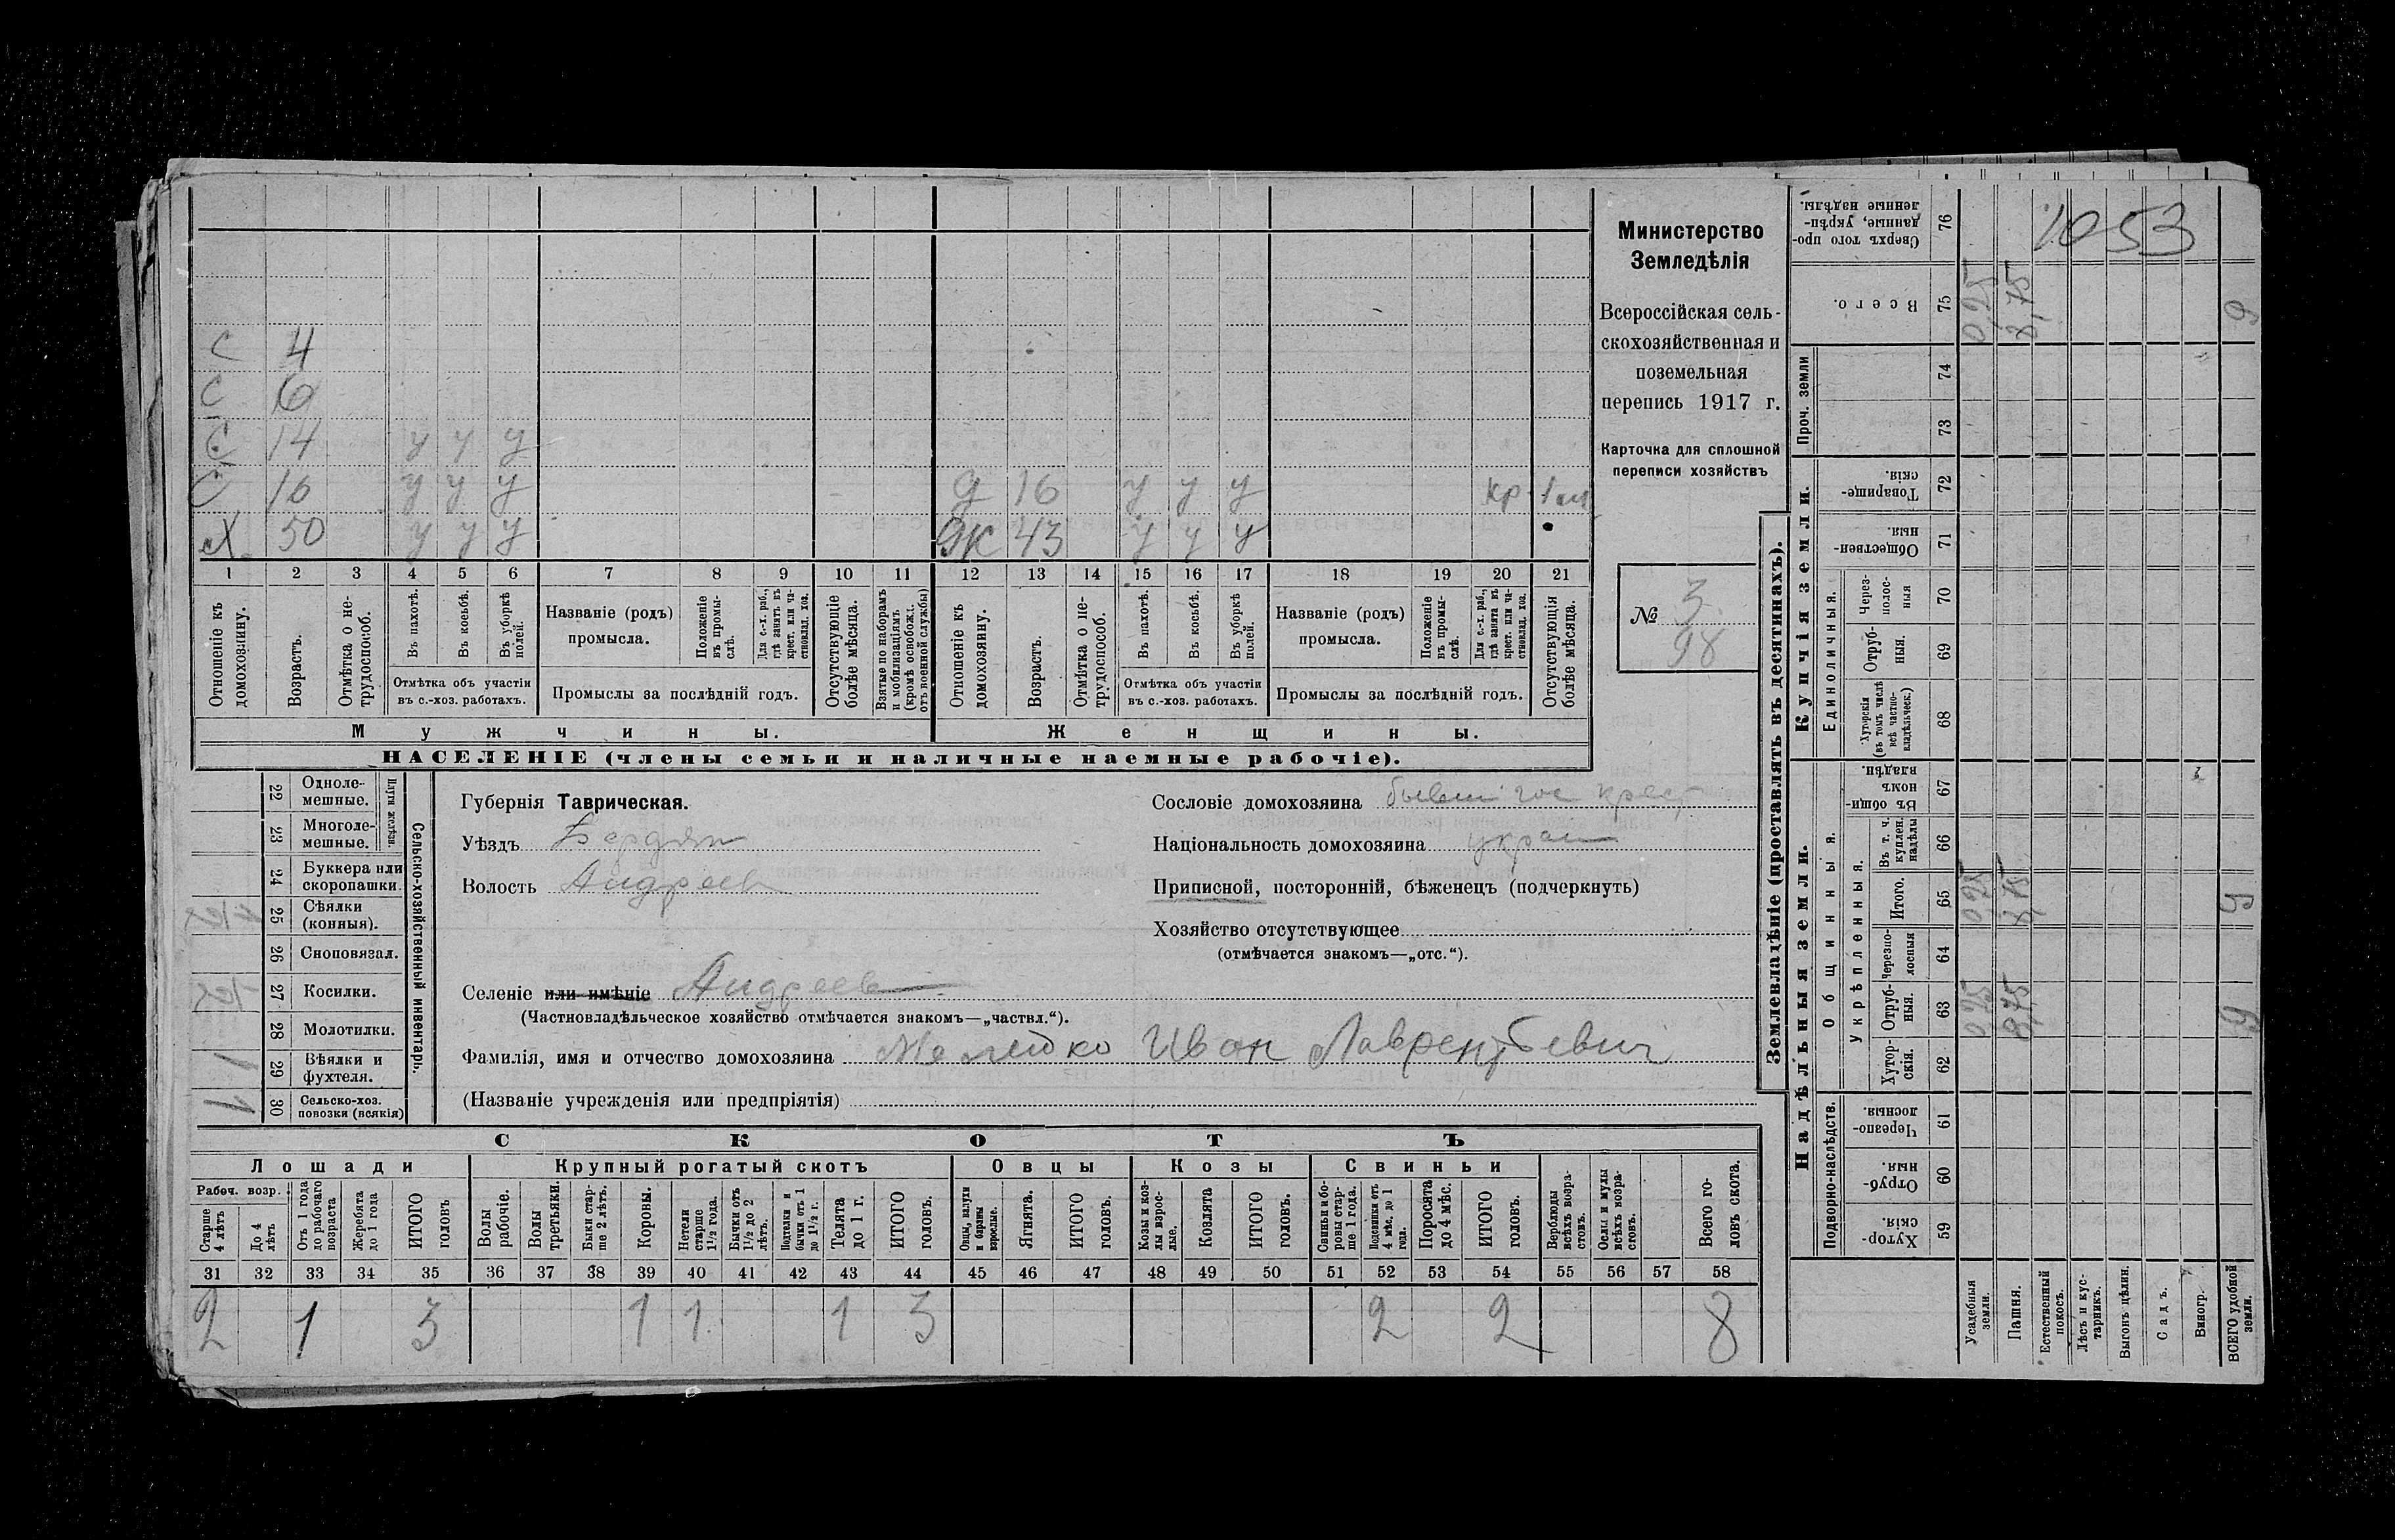 Министерство
Земледѣлія
Всероссійская сель-
скохозяйственная и
поземельная
перепись 1917 г.
Карточка для сплошной
переписи хозяйствъ
№ 3
98
1053
С 4
С 6
С 14 у у у
С 16 у у у д 16 у у у кр 1 м
Х 50 у у у Ж 43 у у у
1 2 3 4 5 6 7 8 9 10 11 12 13 14 15 16 17 18 19 20 21
Отношеніе къ домохозяину.
Возрастъ.
Отмѣтка о не-трудоспособ.
Въ пахотѣ.
Въ косьбѣ.
Въ уборкѣ полей.
Отмѣтка объ участіи въ с.-хоз. работахъ.
Названіе (родъ) промысла.
Положеніе въ промы-слѣ.
Для с.-х. раб., гдѣ занятъ въ крест. или ча-стновлад. хоз.
Промыслы за послѣдній годъ.
Отсутствующіе болѣе мѣсяца.
Взятые по наборамъ и мобилизаціямъ (кромѣ освобожд. отъ военной службы)
Отношеніе къ домохозяину.
Возрастъ.
Отмѣтка о не-трудоспособ.
Въ пахотѣ.
Въ косьбѣ.
Въ уборкѣ полей.
Отмѣтка объ участіи въ с.-хоз. работахъ.
Названіе (родъ) промысла.
Положеніе въ промы-слѣ.
Для с.-х. раб., гдѣ занята въ крест. или ча-стновлад. хоз.
Промыслы за послѣдній годъ.
Отсутствующія болѣе мѣсяца.
Мужчины. Женщины.
НАСЕЛЕНІЕ (члены семьи и наличные наемные рабочіе).
Сельско-хозяйственный инвентарь.
Плуги желѣзн.
22 Одноле-мешные.
23 Многоле-мешные.
24 Буккера или скоропашки.
25 Сѣялки (конныя).
26 Сноповязал.
27 Косилки.
28 Молотилки.
29 Вѣялки и фухтеля. 1
30 Сельско-хоз. повозки (всякія) 1
Губернія Таврическая.
Уѣздъ Бердян
Волость Андреев
Селеніе или имѣніе Андреев
(Частновладѣльческое хозяйство отмѣчается знакомъ—„частвл.“).
Фамилія, имя и отчество домохозяина Иван Лаврентьевич
(Названіе учрежденія или предпріятія)
Сословіе домохозяина бывш гос крест
Національность домохозяина украин
Приписной, посторонній, бѣженецъ (подчеркнуть)
Хозяйство отсутствующее
(отмѣчается знакомъ—„отс.“).
СКОТЪ
Лошади Крупный рогатый скотъ Овцы Козы Свиньи
Рабоч. возр.
Старше 4 лѣтъ
До 4 лѣтъ
Отъ 1 года до рабочаго возраста
Жеребята до 1 года
ИТОГО головъ
Волы рабочіе.
Волы третьяки.
Быки стар-ше 2 лѣтъ.
Коровы.
Нетели старше 1½ года.
Бычки отъ 1½ до 2 лѣтъ.
Подтелки и бычки отъ 1 до 1½ г.
Телята до 1 г.
ИТОГО головъ.
Овцы, валухи и бараны взрослые.
Ягнята.
ИТОГО головъ.
Козы и коз-лы взрос-лые.
Козлята
ИТОГО головъ.
Свиньи и бо-ровы стар-ше 1 года.
Подсвинки отъ 4 мѣс. до 1 года.
Поросята до 4 мѣс.
ИТОГО головъ.
Верблюды всѣхъ возра-стовъ.
Ослы и мулы всѣхъ возра-стовъ.
Всего го-ловъ скота.
31 32 33 34 35 36 37 38 39 40 41 42 43 44 45 46 47 48 49 50 51 52 53 54 55 56 57 58
2 1 3 1 1 1 3 2 2 8
Землевладѣніе (проставлять въ десятинахъ).
Надѣльныя земли. Купчія земли.
Подворно-наслѣдств.
Общинныя.
Укрѣпленныя.
Единоличныя.
Проч. земли
59 Хутор-скія.
60 Отруб-ныя.
61 Черезпо-лосныя.
62 Хутор-скія.
63 Отруб-ныя. 0,25 8,75 9
64 Черезпо-лосныя
65 Итого. 0,25 8,75 9
66 Въ т. ч. куплен. надѣлы
67 Въ общин-номъ владѣн.
68 Хуторскія (въ томъ числѣ всѣ частно-владѣльческ.)
69 Отруб-ныя.
70 Через-полос-ныя
71 Обществен-ныя
72 Товарище-скія.
73
74
75 Всего. 0,25 8,75 9
76 Сверхъ того про-данные, укрѣп-ленные надѣлы.
Усадебныя земли.
Пашня.
Естественный покосъ.
Лѣсъ и кус-тарникъ.
Выгонъ цѣлин.
Садъ.
Виногр.
ВСЕГО удобной земли.